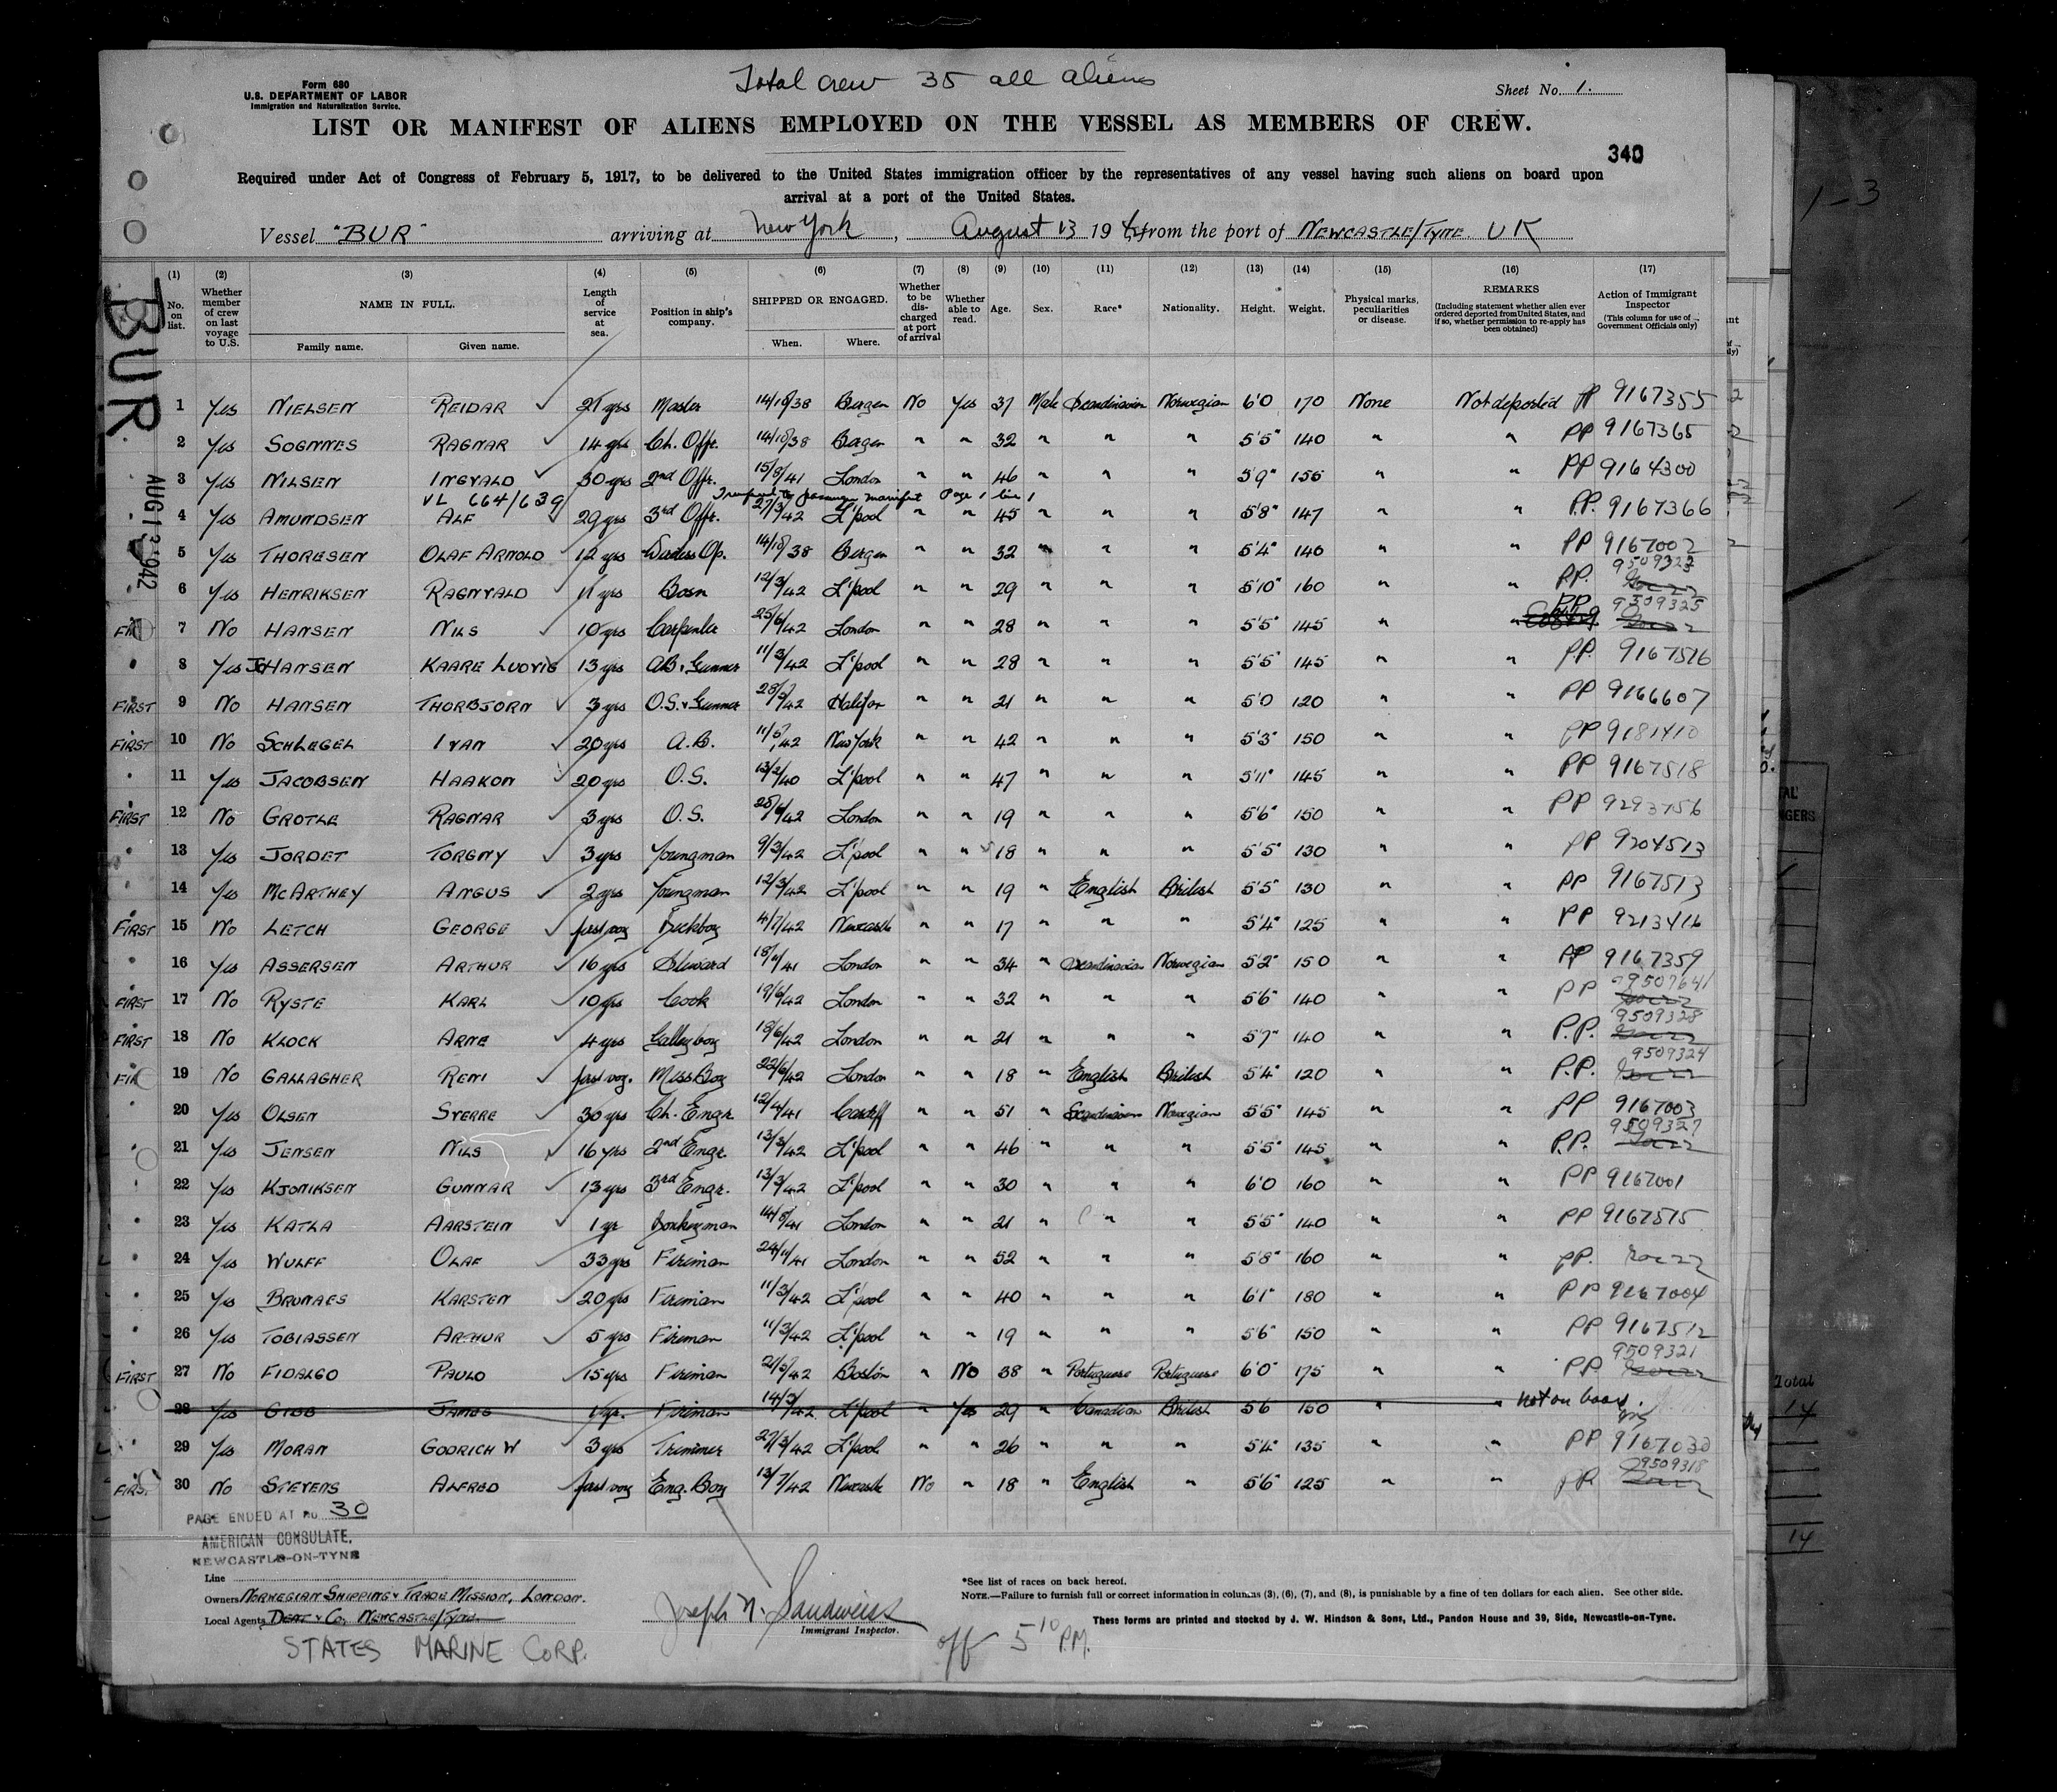 Total crew 35 all aliens
Form 680
U.S. DEPARTMENT OF LABOR
Immigration and Naturalization Service.
Sheet No. 1.
LIST OR MANIFEST OF ALIENS EMPLOYED ON THE VESSEL AS MEMBERS OF CREW.
340
Required under Act of Congress of February 5, 1917, to be delivered to the United States immigration officer by the representatives of any vessel having such aliens on board upon
arrival at a port of the United States.
Vessel "BUR" arriving at New York, August 13 194 from the port of NEWCASTLE/TYNE. UK
(1) (2) (3) (4) (5) (6) (7) (8) (9) (10) (11) (12) (13) (14) (15) (16) (17)
No. on list. Whether member of crew on last voyage to U.S. NAME IN FULL. Family name. Given name. Length of service at sea. Position in ship's company. SHIPPED OR ENGAGED. When. Where. Whether to be discharged at port of arrival Whether able to read. Age. Sex. Race* Nationality. Height. Weight. Physical marks, peculiarities or disease. REMARKS (Including statement whether alien ever ordered deported from United States, and if so, whether permission to re-apply has been obtained) Action of Immigrant Inspector (This column for use of Government Officials only)
BUR
AUG 13 1942
1 Yes NIELSEN REIDAR 21 yrs Master 14/10/38 Bergen No Yes 37 Male Scandinavian Norwegian 6'0 170 None Not deported PP 9167355
2 Yes SOGNNES RAGNAR 14 yrs Ch. Offr. 14/10/38 Bergen " " 32 " " " 5'5" 140 " " PP 9167365
3 Yes NILSEN INGVALD 30 yrs 2nd Offr. 15/8/41 London " " 46 " " " 5'9" 155 " " PP 9164300
VL 664/639 Transferred to passenger manifest Page 1 line 1
4 Yes AMUNDSEN ALF 29 yrs 3rd Offr. 27/3/42 L'pool " " 45 " " " 5'8" 147 " " P.P. 9167366
5 Yes THORESEN OLAF ARNOLD 12 yrs Wireless Op. 14/10/38 Bergen " " 32 " " " 5'4" 140 " " PP 9167002
6 Yes HENRIKSEN RAGNVALD 11 yrs Bosn 12/3/42 L'pool " " 29 " " " 5'10" 160 " " P.P. 9509323
7 No HANSEN NILS 10 yrs Carpenter 25/6/42 London " " 28 " " " 5'5" 145 " " PP 9509325
8 Yes JOHANSEN KAARE LUDVIG 13 yrs A.B. & Gunner 11/3/42 L'pool " " 28 " " " 5'5" 145 " " PP. 9167516
FIRST 9 No HANSEN THORBJORN 3 yrs O.S. & Gunner Halifax " " 21 " " " 5'0 120 " " PP 9166607
FIRST 10 No SCHLEGEL IVAN 20 yrs A.B. New York " " 42 " " " 5'3" 150 " " PP 9181410
11 Yes JACOBSEN HAAKON 20 yrs O.S. 13/2/40 L'pool " " 47 " " " 5'11" 145 " " PP 9167518
FIRST 12 No GROTLE RAGNAR 3 yrs O.S. 25/6/42 London " " 19 " " " 5'6" 150 " " PP 9293756
13 Yes JORDET TORGNY 3 yrs Youngman 9/3/42 L'pool " " 18 " " " 5'5" 130 " " PP 9204513
14 Yes McARTHEY ANGUS 2 yrs Youngman 12/3/42 L'pool " " 19 " English British 5'5" 130 " " PP 9167513
FIRST 15 No LETCH GEORGE first voy Deckboy 4/7/42 Newcastle " " 17 " " " 5'4" 125 " " PP 9213416
16 Yes ASSERSEN ARTHUR 16 yrs Steward London " " 34 " Scandinavian Norwegian 5'2" 150 " " PP 9167359
FIRST 17 No RYSTE KARL 10 yrs Cook 19/6/42 London " " 32 " " " 5'6" 140 " " PP 9507641
FIRST 18 No KLOCK ARNE 4 yrs Galley boy 18/6/42 London " " 21 " " " 5'7" 140 " " P.P. 9509328
19 No GALLAGHER RENI first voy. Mess Boy 22/6/42 London " " 18 " English British 5'4" 120 " " P.P. 9509324
20 Yes OLSEN SVERRE 30 yrs Ch. Engr. 12/4/41 Cardiff " " 51 " Scandinavian Norwegian 5'5" 145 " " PP 9167003
21 Yes JENSEN NILS 16 yrs 2nd Engr. 13/3/42 L'pool " " 46 " " " 5'5" 145 " " P.P. 9509327
22 Yes KJONIKSEN GUNNAR 13 yrs 3rd Engr. 13/3/42 L'pool " " 30 " " " 6'0 160 " " PP 9167001
23 Yes KATLA AARSTEIN 1 yr Donkeyman 14/8/41 London " " 21 " " " 5'5" 140 " " PP 9167515
24 Yes WULFF OLAF 33 yrs Fireman 24/11/41 London " " 52 " " " 5'8" 160 " " PP.
25 Yes BRUNAES KARSTEN 20 yrs Fireman 11/3/42 L'pool " " 40 " " " 6'1" 180 " " PP 9167004
26 Yes TOBIASSEN ARTHUR 5 yrs Fireman 11/3/42 L'pool " " 19 " " " 5'6" 150 " " PP 9167512
FIRST 27 No FIDALGO PAULO 15 yrs Fireman 21/5/42 Boston " No 38 " Portuguese Portuguese 6'0" 175 " " PP 9509321
28 Yes GIBB JAMES 1 yr. Fireman 14/3/42 L'pool " Yes 29 " Canadian British 5'6 150 " " not on board.
29 Yes MORAN GODRICH W 3 yrs Trimmer 27/3/42 L'pool " " 26 " " " 5'4" 135 " " PP 9167030
FIRST 30 No STEVENS ALFRED first voy Eng. Boy 13/7/42 Newcastle No " 18 " English " 5'6" 125 " " PP. 9509318
PAGE ENDED AT No. 30
AMERICAN CONSULATE,
NEWCASTLE-ON-TYNE
Line
Owners NORWEGIAN SHIPPING & TRADE MISSION, LONDON.
Local Agents DENT & CO. NEWCASTLE/TYNE.
STATES MARINE CORP.
Joseph N. Sandweiss
Immigrant Inspector.
off 5 10 P.M.
*See list of races on back hereof.
NOTE.—Failure to furnish full or correct information in columns (3), (6), (7), and (8), is punishable by a fine of ten dollars for each alien. See other side.
These forms are printed and stocked by J. W. Hindson & Sons, Ltd., Pandon House and 39, Side, Newcastle-on-Tyne.
1-3
Total
14
14